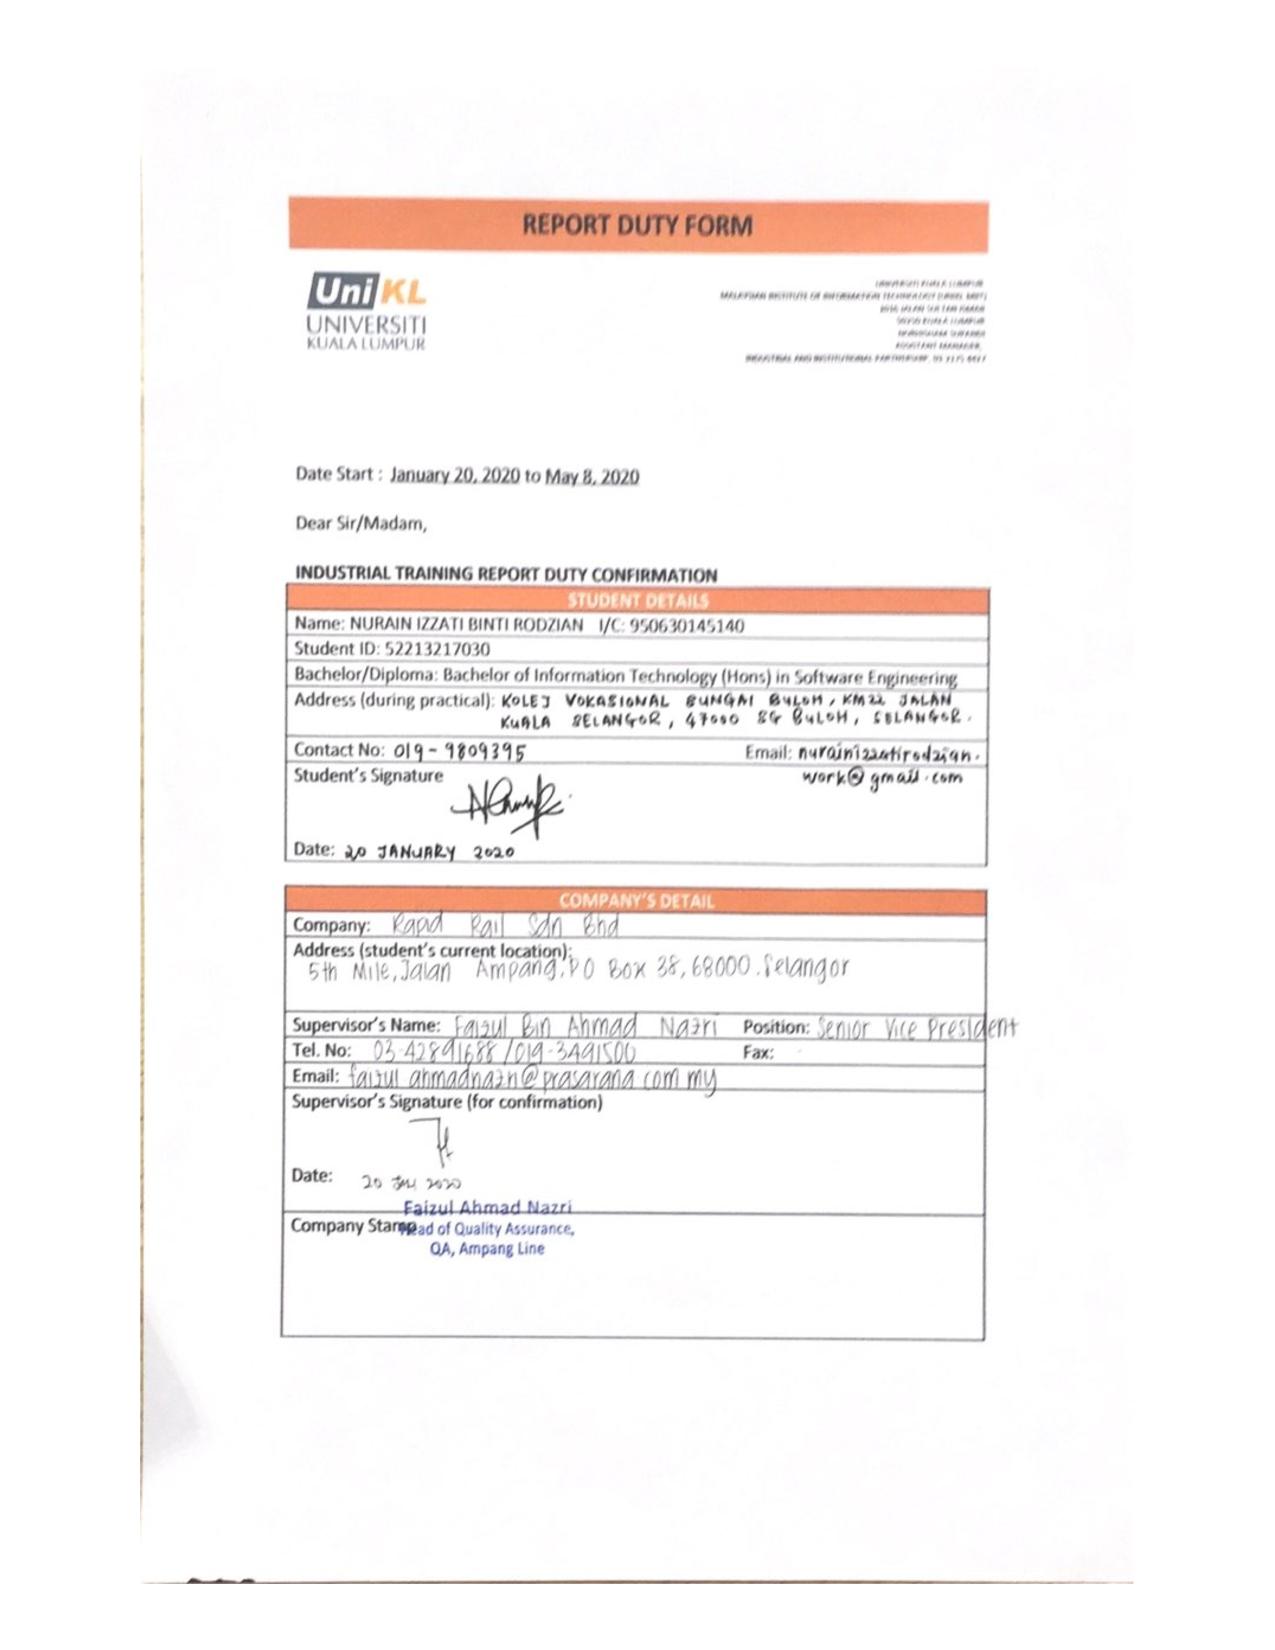 REPORT DUTY FORM
UniKL
UNIVERSITI
KUALA LUMPUR
UNIVERSITI KUALA LUMPUR
MALAYSIAN INSTITUTE OF INFORMATION TECHNOLOGY (UNIKL MIIT)
KUALA LUMPUR
ASSISTANT MANAGER,
INDUSTRIAL AND INSTITUTIONAL PARTNERSHIP,
Date Start : January 20, 2020 to May 8, 2020
Dear Sir/Madam,
INDUSTRIAL TRAINING REPORT DUTY CONFIRMATION
STUDENT DETAILS
Name: NURAIN IZZATI BINTI RODZIAN I/C: 950630145140
Student ID: 52213217030
Bachelor/Diploma: Bachelor of Information Technology (Hons) in Software Engineering
Address (during practical): KOLEJ VOKASIONAL SUNGAI BULOH, KM22 JALAN
KUALA SELANGOR, 47000 SG BULOH, SELANGOR.
Contact No: 019-9809395 Email: nurainizzatirodzian.
Student's Signature work@gmail.com
Date: 20 JANUARY 2020
COMPANY'S DETAIL
Company: Rapid Rail Sdn Bhd
Address (student's current location):
5th Mile, Jalan Ampang, PO Box 38, 68000. Selangor
Supervisor's Name: Faizul Bin Ahmad Nazri Position: Senior Vice President
Tel. No: 03-42891688 / 019-3491500 Fax: -
Email: faizul.ahmadnazri@prasarana.com.my
Supervisor's Signature (for confirmation)
Date: 20 JAN 2020
Faizul Ahmad Nazri
Company Stamp Head of Quality Assurance,
QA, Ampang Line